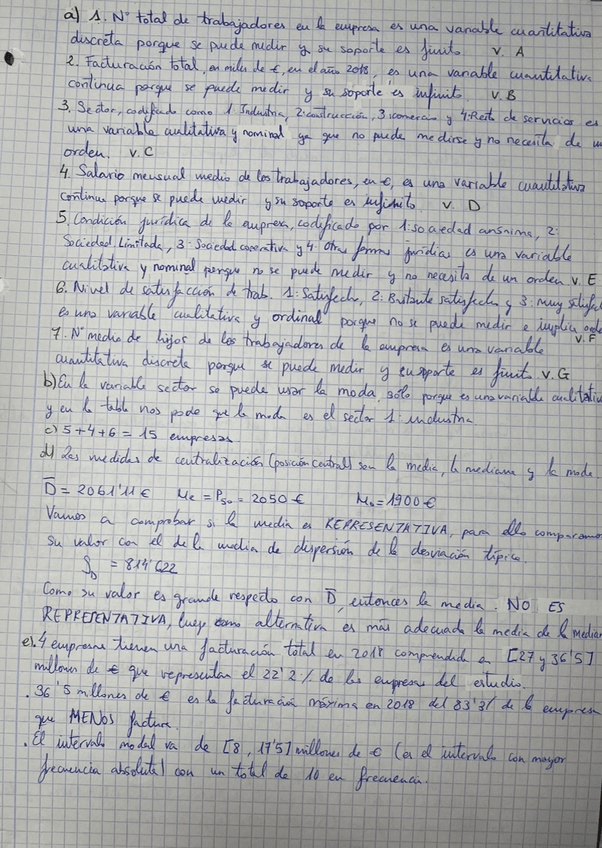 a) 1. Nº total de trabajadores en la empresa es una variable cuantitativa
discreta porque se puede medir y su soporte es finito. V. A
2. Facturación total, en miles de €, en el año 2018, es una variable cuantitativa
continua porque se puede medir y su soporte es infinito. V.B
3. Sector, codificado como 1 Industria, 2: construcción, 3: comercio y 4: Resto de servicios es
una variable cualitativa y nominal ya que no puede medirse y no necesita de un
orden. V.C
4. Salario mensual medio de los trabajadores, en €, es una variable cuantitativa
continua porque se puede medir y su soporte es infinito. V. D
5. Condición jurídica de la empresa, codificada por 1: sociedad anónima, 2:
Sociedad Limitada, 3: Sociedad cooperativa y 4: Otras formas jurídicas es una variable
cualitativa y nominal porque no se puede medir y no necesita de un orden V. E
6. Nivel de satisfacción de trab. 1: Satisfecho, 2: Bastante satisfecho y 3: muy satisfe
es una variable cualitativa y ordinal porque no se puede medir e implica orden
V. F
7. Nº medio de hijos de los trabajadores de la empresa es una variable
cuantitativa discreta porque se puede medir y su soporte es finito V. G
b) En la variable sector se puede usar la moda, sólo porque es una variable cualitativa
y en la tabla nos pode que la moda es el sector 1: industria
c) 5+4+6 = 15 empresas
d) Las medidas de centralización (posición central) son la media, la mediana y la moda.
D̅ = 2061'11 € Me = P50 = 2050 € Mo = 1900 €
Vamos a comprobar si la media es REPRESENTATIVA, para ello comparamos
su valor con el de la media de dispersión de la desviación típica.
S_D = 814'622
Como su valor es grande respecto con D̅, entonces la media. NO ES
REPRESENTATIVA, luego como alternativa es más adecuada la media de la mediana
e). 4 empresas tienen una facturación total en 2018 comprendida en [27 y 36'5]
millones de € que representan el 22'2% de las empresas del estudio.
. 36'5 millones de € es la facturación máxima en 2018 del 83'3% de la empresa
que MENOS factura.
. El intervalo modal va de [8, 17'5] millones de € (es el intervalo con mayor
frecuencia absoluta) con un total de 10 en frecuencia.